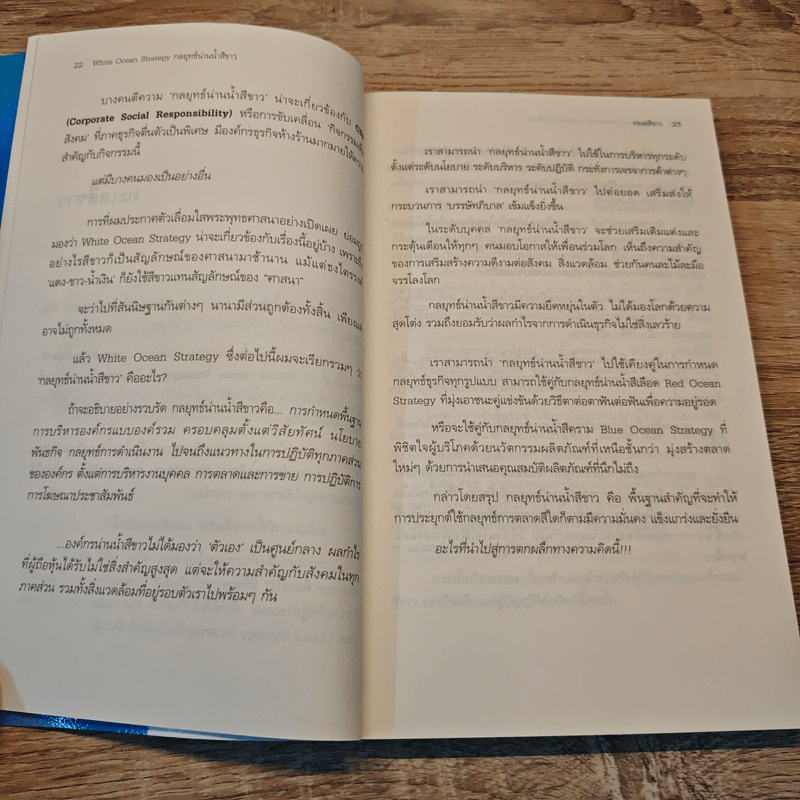 22 White Ocean Strategy กลยุทธ์น่านน้ำสีขาว
บางคนตีความ ‘กลยุทธ์น่านน้ำสีขาว’ น่าจะเกี่ยวข้องกับ
(Corporate Social Responsibility) หรือการขับเคลื่อน ‘กิจกรรมเพื่อ
สังคม’ ที่ภาคธุรกิจตื่นตัวเป็นพิเศษ มีองค์กรธุรกิจห้างร้านมากมายให้ความ
สำคัญกับกิจกรรมนี้
แต่มีบางคนมองเป็นอย่างอื่น
การที่ผมประกาศตัวเลื่อมใสพระพุทธศาสนาอย่างเปิดเผย ย่อม
มองว่า White Ocean Strategy น่าจะเกี่ยวข้องกับเรื่องนี้อยู่บ้าง เพราะ
อย่างไรสีขาวก็เป็นสัญลักษณ์ของศาสนามาช้านาน แม้แต่ธงไตรรงค์
‘แดง-ขาว-น้ำเงิน’ ก็ยังใช้สีขาวแทนสัญลักษณ์ของ “ศาสนา”
จะว่าไปที่สันนิษฐานกันต่างๆ นานามีส่วนถูกต้องทั้งสิ้น เพียงแต่
อาจไม่ถูกทั้งหมด
แล้ว White Ocean Strategy ซึ่งต่อไปนี้ผมจะเรียกรวมๆ ว่า
‘กลยุทธ์น่านน้ำสีขาว’ คืออะไร?
ถ้าจะอธิบายอย่างรวบรัด กลยุทธ์น่านน้ำสีขาวคือ... การกำหนดพื้นฐาน
การบริหารองค์กรแบบองค์รวม ครอบคลุมตั้งแต่วิสัยทัศน์ นโยบาย
พันธะกิจ กลยุทธ์การดำเนินงาน ไปจนถึงแนวทางในการปฏิบัติทุกภาคส่วน
ขององค์กร ตั้งแต่การบริหารงานบุคคล การตลาดและการขาย การปฏิบัติการ
การโฆษณาประชาสัมพันธ์
...องค์กรน่านน้ำสีขาวไม่ได้มองว่า ‘ตัวเอง’ เป็นศูนย์กลาง ผลกำไร
ที่ผู้ถือหุ้นได้รับไม่ใช่สิ่งสำคัญสูงสุด แต่จะให้ความสำคัญกับสังคมในทุก
ภาคส่วน รวมทั้งสิ่งแวดล้อมที่อยู่รอบตัวเราไปพร้อมๆ กัน
ทะเลสีขาว 23
เราสามารถนำ ‘กลยุทธ์น่านน้ำสีขาว’ ไปใช้ในการบริหารทุกระดับ
ตั้งแต่ระดับนโยบาย ระดับบริหาร ระดับปฏิบัติ กระทั่งการเจรจาการค้าต่างๆ
เราสามารถนำ ‘กลยุทธ์น่านน้ำสีขาว’ ไปต่อยอด เสริมส่งให้
กระบวนการ ‘บรรษัทภิบาล’ เข้มแข็งยิ่งขึ้น
ในระดับบุคคล ‘กลยุทธ์น่านน้ำสีขาว’ จะช่วยเสริมเติมแต่งและ
กระตุ้นเตือนให้ทุกๆ คนมอบโอกาสให้เพื่อนร่วมโลก เห็นถึงความสำคัญ
ของการเสริมสร้างความดีงามต่อสังคม สิ่งแวดล้อม ช่วยกันคนละไม้ละมือ
จรรโลงโลก
กลยุทธ์น่านน้ำสีขาวมีความยืดหยุ่นในตัว ไม่ได้มองโลกด้วยความ
สุดโต่ง รวมถึงยอมรับว่าผลกำไรจากการดำเนินธุรกิจไม่ใช่สิ่งเลวร้าย
เราสามารถนำ ‘กลยุทธ์น่านน้ำสีขาว’ ไปใช้เคียงคู่ในการกำหนด
กลยุทธ์ธุรกิจทุกรูปแบบ สามารถใช้คู่กับกลยุทธ์น่านน้ำสีเลือด Red Ocean
Strategy ที่มุ่งเอาชนะคู่แข่งขันด้วยวิธีตาต่อตาฟันต่อฟันเพื่อความอยู่รอด
หรือจะใช้คู่กับกลยุทธ์น่านน้ำสีคราม Blue Ocean Strategy ที่
พิชิตใจผู้บริโภคด้วยนวัตกรรมผลิตภัณฑ์ที่เหนือชั้นกว่า มุ่งสร้างตลาด
ใหม่ๆ ด้วยการนำเสนอคุณสมบัติผลิตภัณฑ์ที่นึกไม่ถึง
กล่าวโดยสรุป กลยุทธ์น่านน้ำสีขาว คือ พื้นฐานสำคัญที่จะทำให้
การประยุกต์ใช้กลยุทธ์การตลาดสีใดก็ตามมีความมั่นคง แข็งแกร่งและยั่งยืน
อะไรที่นำไปสู่การตกผลึกทางความคิดนี้!!!